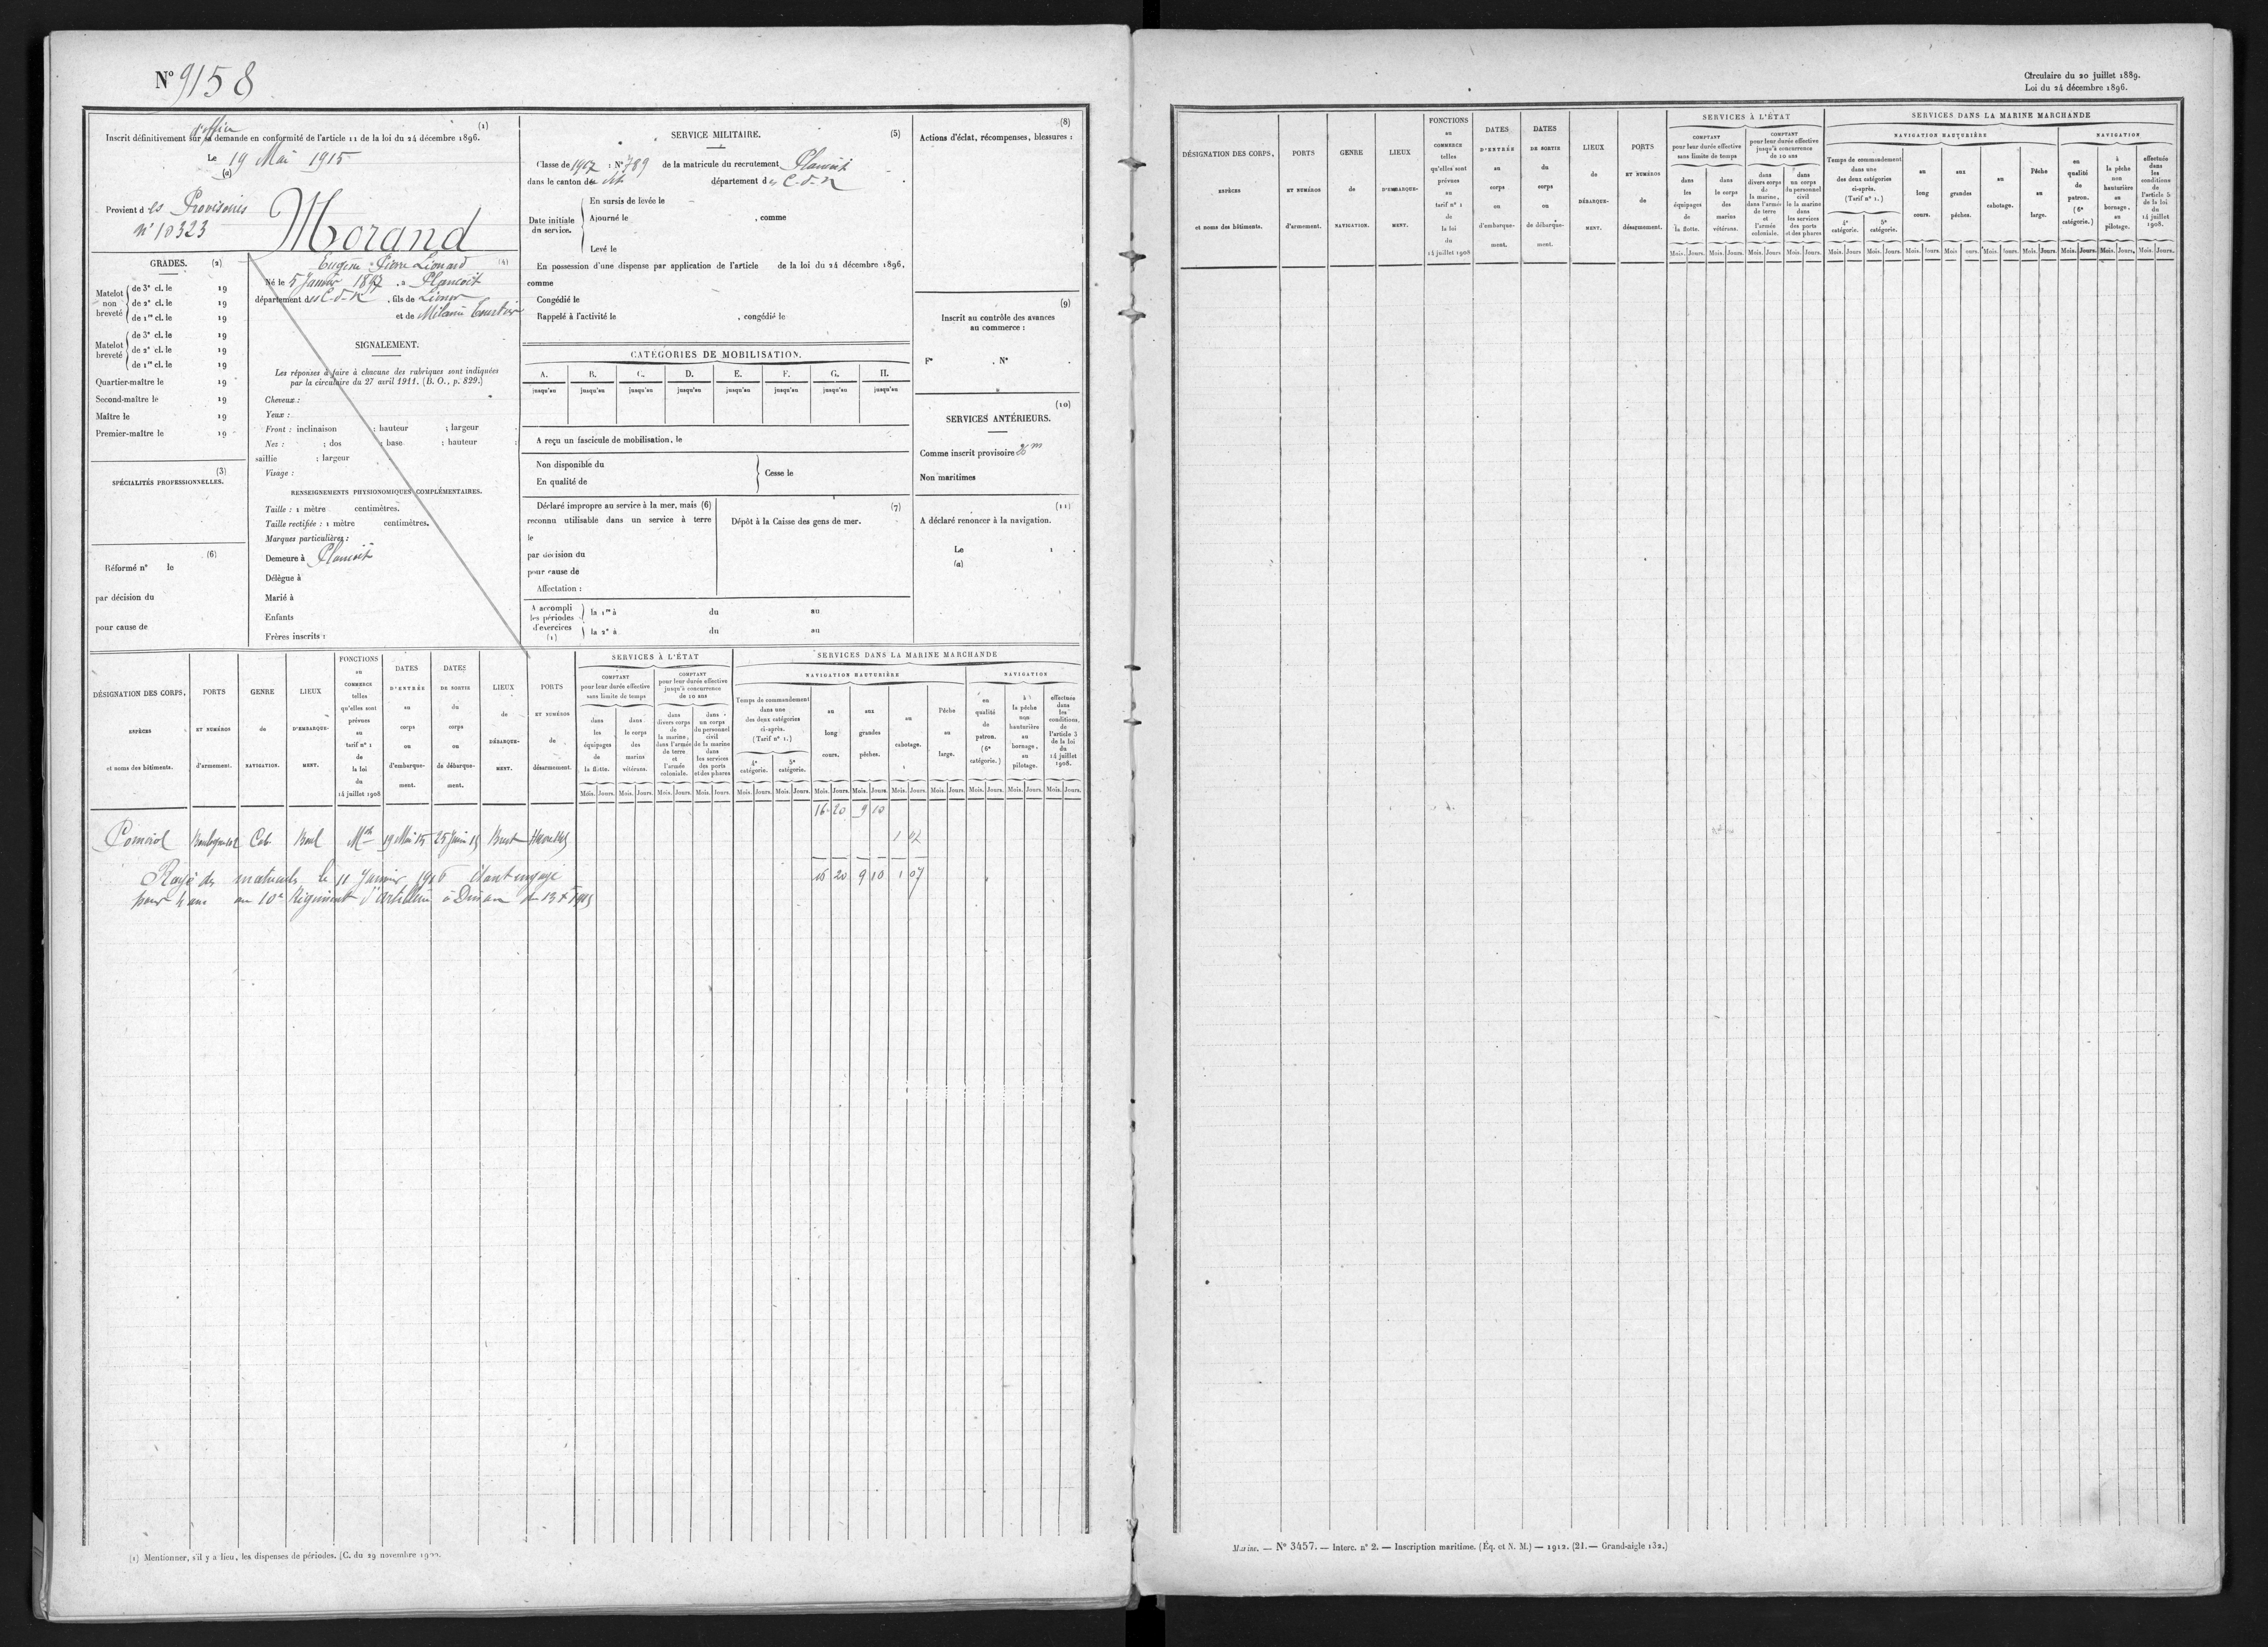 N° 9158
Circulaire du 20 juillet 1889.
Loi du 24 décembre 1896.
d'office
Inscrit définitivement sur sa demande en conformité de l'article 11 de la loi du 24 décembre 1896. (1)
Le 19 Mai 1915
(a)
Provient des Provisoires
n° 10323
Morand
Eugène Pierre Léonard (4)
Né le 5 Janvier 1897, à Plancoët
département des C-d-N, fils de
et de Mélanie
SIGNALEMENT.
Les réponses à faire à chacune des rubriques sont indiquées
par la circulaire du 27 avril 1911. (B. O., p. 829.)
Cheveux :
Yeux :
Front : inclinaison ; hauteur ; largeur
Nez : ; dos ; base ; hauteur ;
saillie ; largeur
Visage :
RENSEIGNEMENTS PHYSIONOMIQUES COMPLÉMENTAIRES.
Taille : 1 mètre centimètres.
Taille rectifiée : 1 mètre centimètres.
Marques particulières :
Demeure à Plancoët
Délégue à
Marié à
Enfants
Frères inscrits :
GRADES. (2)
Matelot non breveté
de 3e cl. le 19
de 2e cl. le 19
de 1re cl. le 19
Matelot breveté
de 3e cl. le 19
de 2e cl. le 19
de 1re cl. le 19
Quartier-maître le 19
Second-maître le 19
Maître le 19
Premier-maître le 19
(3)
SPÉCIALITÉS PROFESSIONNELLES.
(6)
Réformé n° le
par décision du
pour cause de
SERVICE MILITAIRE. (5)
Classe de 1917 : N° 789 de la matricule du recrutement Plancoët
dans le canton du dit département des C-d-N
Date initiale du service.
En sursis de levée le
Ajourné le , comme
Levé le
En possession d'une dispense par application de l'article de la loi du 24 décembre 1896,
comme
Congédié le
Rappelé à l'activité le , congédié le
CATÉGORIES DE MOBILISATION.
A. B. C. D. E. F. G. H.
jusqu'au jusqu'au jusqu'au jusqu'au jusqu'au jusqu'au jusqu'au jusqu'au
A reçu un fascicule de mobilisation, le
Non disponible du
En qualité de
Cesse le
Déclaré impropre au service à la mer, mais (6)
reconnu utilisable dans un service à terre
le
par décision du
pour cause de
Affectation :
(7)
Dépôt à la Caisse des gens de mer.
A accompli les périodes d'exercices (1)
la 1re à du au
la 2e à du au
(8)
Actions d'éclat, récompenses, blessures :
(9)
Inscrit au contrôle des avances
au commerce :
F° . N° .
(10)
SERVICES ANTÉRIEURS.
Comme inscrit provisoire
Non maritimes
(11)
A déclaré renoncer à la navigation.
Le 1 .
(a)
DÉSIGNATION DES CORPS, ESPÈCES et noms des bâtiments.
PORTS ET NUMÉROS d'armement.
GENRE de NAVIGATION.
LIEUX D'EMBARQUEMENT.
FONCTIONS au COMMERCE telles qu'elles sont prévues au tarif n° 1 de la loi du 14 juillet 1908
DATES D'ENTRÉE au corps ou d'embarquement.
DATES DE SORTIE du corps ou de débarquement.
LIEUX de DÉBARQUEMENT.
PORTS ET NUMÉROS de désarmement.
SERVICES À L'ÉTAT
COMPTANT pour leur durée effective sans limite de temps
dans les équipages de la flotte.
dans le corps des marins vétérans.
COMPTANT pour leur durée effective jusqu'à concurrence de 10 ans
dans divers corps de la marine, dans l'armée de terre et l'armée coloniale.
dans un corps du personnel civil de la marine dans les services des ports et des phares
SERVICES DANS LA MARINE MARCHANDE
NAVIGATION HAUTURIÈRE
Temps de commandement dans une des deux catégories ci-après. (Tarif n° 1.)
4e catégorie. 5e catégorie.
au long cours.
aux grandes pêches.
au cabotage.
Pêche au large.
NAVIGATION
en qualité de patron. (6e catégorie.)
à la pêche non hauturière au bornage, au pilotage.
effectuée dans les conditions de l'article 5 de la loi du 14 juillet 1908.
Mois. Jours. Mois. Jours. Mois. Jours. Mois. Jours. Mois. Jours. Mois. Jours. Mois. Jours. Mois. Jours. Mois. Jours. Mois. Jours. Mois. Jours. Mois. Jours. Mois. Jours.
16 20 9 10
Cab. Mot 19 Mai 15 25 Juin 15 Brest 1 07
16 20 9 10 1 07
Rayé des matricules le 11 Janvier 1916 étant engagé
pour 4 ans au 10e Régiment d'Artillerie à Dinan
(1) Mentionner, s'il y a lieu, les dispenses de périodes. (C. du 29 novembre
DÉSIGNATION DES CORPS, ESPÈCES et noms des bâtiments.
PORTS ET NUMÉROS d'armement.
GENRE de NAVIGATION.
LIEUX D'EMBARQUEMENT.
FONCTIONS au COMMERCE telles qu'elles sont prévues au tarif n° 1 de la loi du 14 juillet 1908
DATES D'ENTRÉE au corps ou d'embarquement.
DATES DE SORTIE du corps ou de débarquement.
LIEUX de DÉBARQUEMENT.
PORTS ET NUMÉROS de désarmement.
SERVICES À L'ÉTAT
COMPTANT pour leur durée effective sans limite de temps
dans les équipages de la flotte.
dans le corps des marins vétérans.
COMPTANT pour leur durée effective jusqu'à concurrence de 10 ans
dans divers corps de la marine, dans l'armée de terre et l'armée coloniale.
dans un corps du personnel civil de la marine dans les services des ports et des phares
SERVICES DANS LA MARINE MARCHANDE
NAVIGATION HAUTURIÈRE
Temps de commandement dans une des deux catégories ci-après. (Tarif n° 1.)
4e catégorie. 5e catégorie.
au long cours.
aux grandes pêches.
au cabotage.
Pêche au large.
NAVIGATION
en qualité de patron. (6e catégorie.)
à la pêche non hauturière au bornage, au pilotage.
effectuée dans les conditions de l'article 5 de la loi du 14 juillet 1908.
Mois. Jours. Mois. Jours. Mois. Jours. Mois. Jours. Mois. Jours. Mois. Jours. Mois. Jours. Mois. Jours. Mois. Jours. Mois. Jours. Mois. Jours. Mois. Jours. Mois. Jours.
Marine. — N° 3457. — Interc. n° 2. — Inscription maritime. (Éq. et N. M.) — 1912. (21. — Grand-aigle 132.)